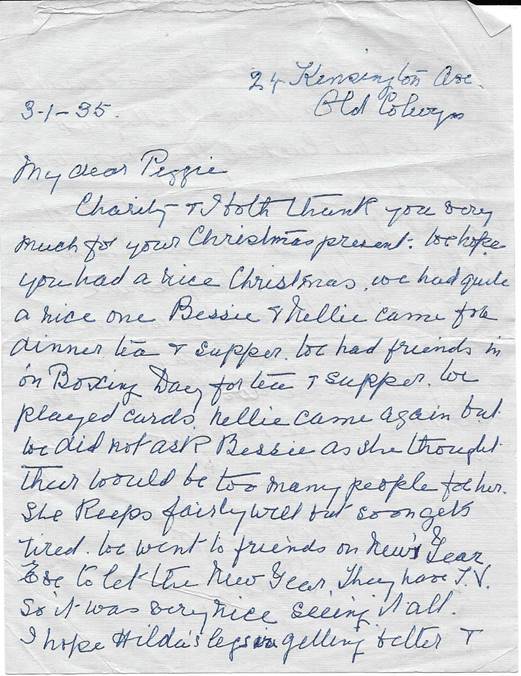 24 Kensington Ave.
Old Colwyn
3-1-55.
My dear Peggie
Charity & I both thank you very
much for your Christmas present. We hope
you had a nice Christmas, we had quite
a nice one Bessie & Nellie came for
dinner tea & supper. We had friends in
on Boxing Day for tea & supper. We
played cards, Nellie came again but
we did not ask Bessie as she thought
their would be too many people for her.
She keeps fairly well but soon gets
tired. We went to friends on New Year
Eve to let the New Year, They have T.V.
so it was very nice seeing it all.
I hope Hilda's legs are getting better &